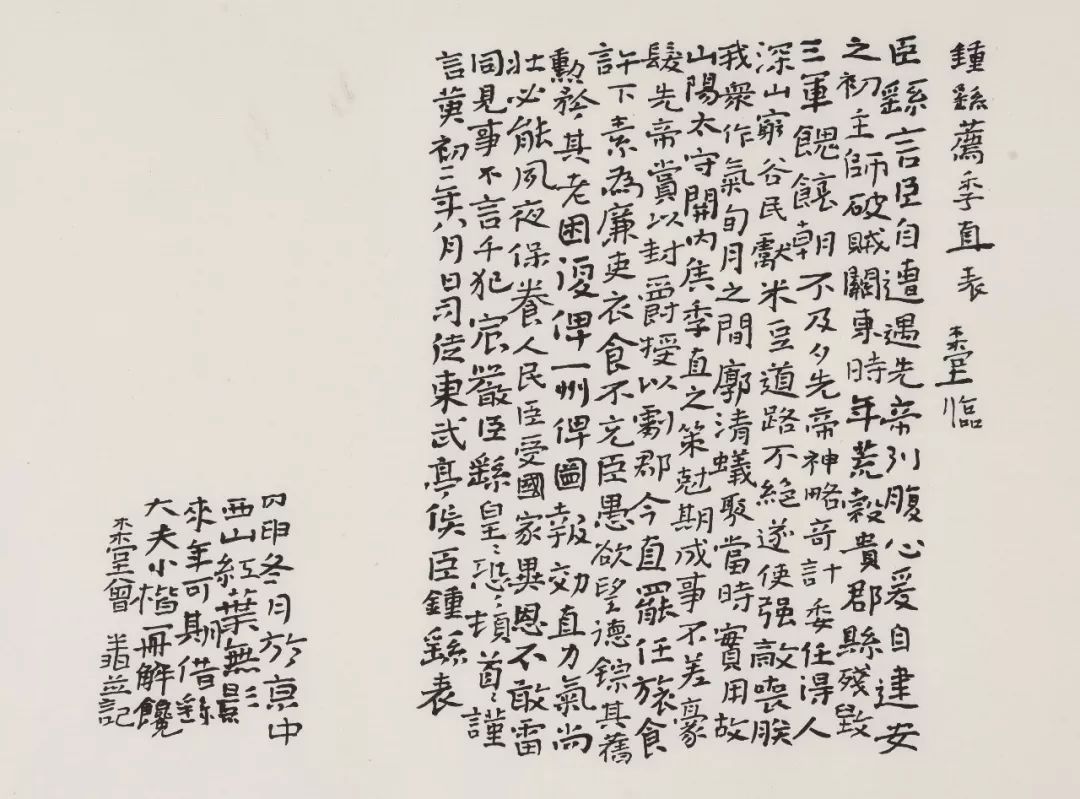 鍾繇薦季直表 臨
臣繇言臣自遭遇先帝列腹心爰自建安
之初王師破賊關東時年荒穀貴郡縣殘毀
三軍餽饟朝不及夕先帝神略奇計委任得人
深山窮谷民獻米豆道路不絕遂使强敵喪膽
我衆作氣旬月之間廓清蟻聚當時實用故
山陽太守關內侯季直之策尅期成事不差豪
髮先帝賞以封爵授以劇郡今直罷任旅食
許下素為廉吏衣食不充臣愚欲望德錄其舊
勳矜其老困復俾一州俾圖報効直力氣尚
壯必能夙夜保養人民臣受國家異恩不敢雷
同見事不言干犯宸嚴臣繇皇〻恐〻頓首〻謹
言黃初二年八月日司徒東武亭侯臣鍾繇表
冬月於京中
西山紅葉無影
來年可期借
大夫小楷一冊解饞
並記